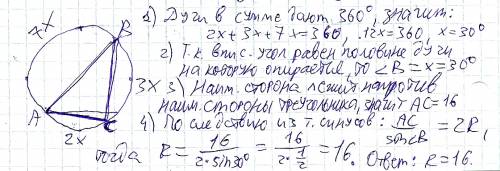 1) Дуги в сумме дают 360°, значит:
2x + 3x + 7x = 360, 12x = 360, x = 30°
2) Т.к. впис. угол равен половине дуги
на которую опирается, то ∠B = x = 30°
3) Наим. сторона лежит напротив
наим. стороны треугольника, значит AC = 16
4) По следствию из т. синусов: AC/sin∠B = 2R,
тогда R = 16/(2·sin30°) = 16/(2·1/2) = 16. Ответ: R = 16.
7x
B
3x
A
C
2x